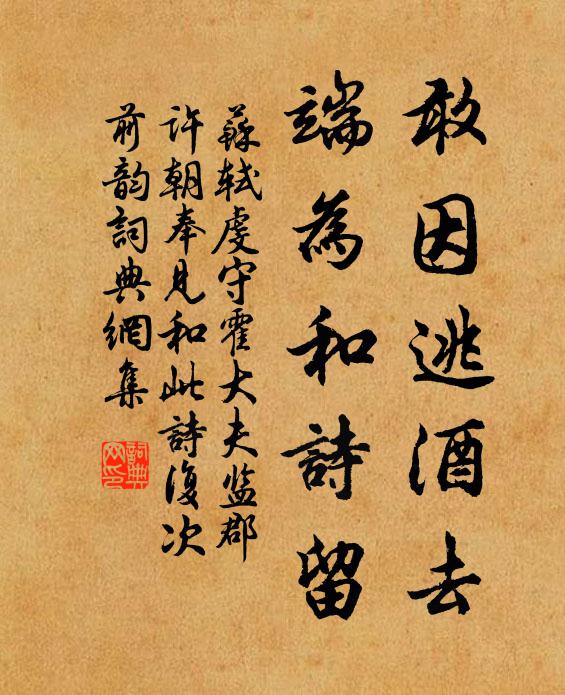 敢因逃酒去
端為和詩留
蘇軾虔守霍大夫监郡
许朝奉見和此詩復次
前韵詞典網集
詞典網印